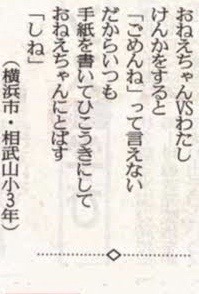 おねえちゃんVSわたし
けんかをすると
「ごめんね」って言えない
だからいつも
手紙を書いてひこうきにして
おねえちゃんにとばす
「しね」
（横浜市・相武山小3年）